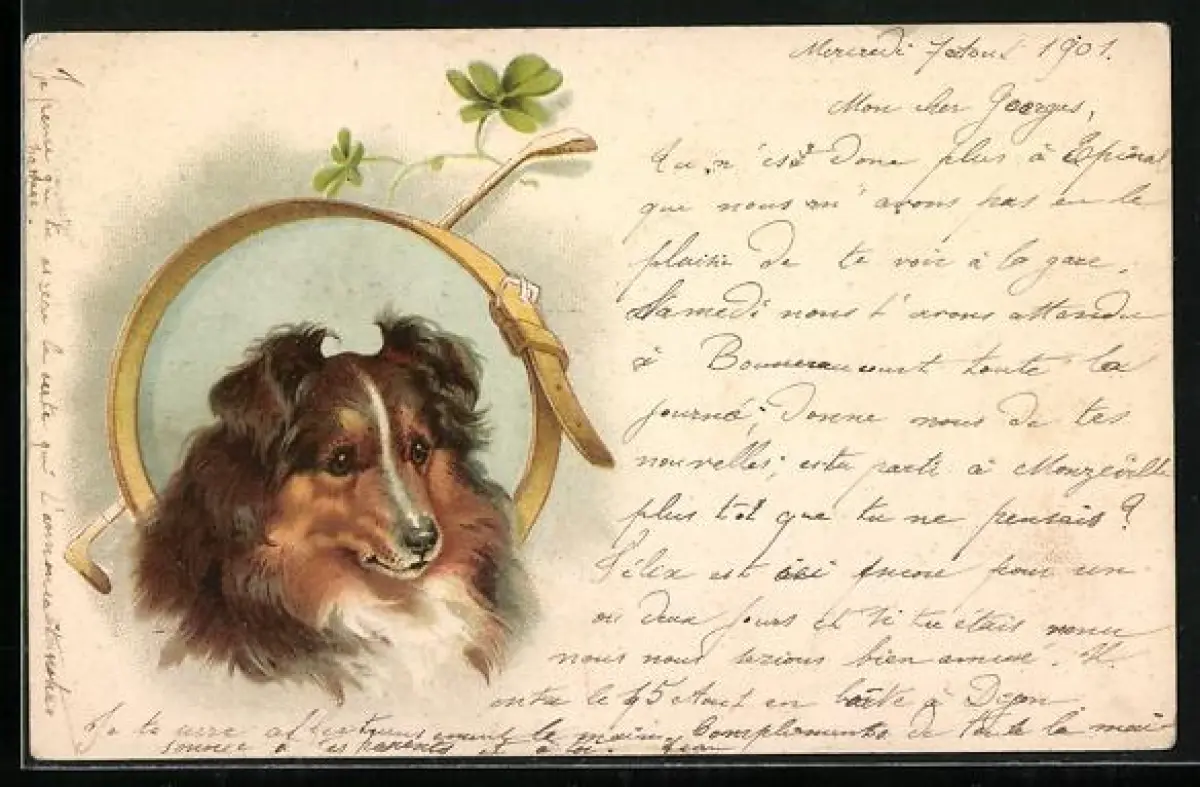 Mercredi 7 Aout 1901.
Mon cher Georges,
Tu n'est donc plus à Epinal
que nous n'avons pas eu le
plaisir de te voir à la gare.
Samedi nous t'avons attendu
à toute la
journé; donne nous de tes
nouvelles; es tu parti à
plus tôt que tu ne pensais?
Félix est ici encore pour un
ou deux jours et si tu étais venu
nous nous serions bien amusé. Il
entre le 15 Aout en boîte à Dijon
Je te serre affectueusement la main. Compliments de toute la mai
sonnee à tes parents et à toi. Jean
Je pense que tu as reçu la carte qui